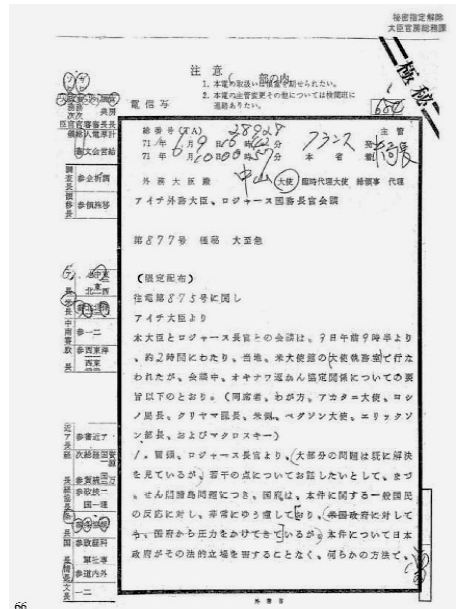 秘密指定解除
大臣官房総務課
極秘
注意
1. 本電の取扱いは慎重を期せられたい。
2. 本電の主管変更その他については検閲班に
連絡ありたい。
電信写
総番号(TA) 28928
主管
71年6月9日
フランス 発
71年6月10日
本省 着
外務大臣殿 中山 大使 臨時代理大使 総領事 代理
アイチ外務大臣、ロジャース国務長官会談
第877号 極秘 大至急
(限定配布)
往電第875号に関し
アイチ大臣より
本大臣とロジャース長官との会談は、9日午前9時半より
、約2時間にわたり、当地、米大使館の大使執務室で行な
われたが、会談中、オキナワ返かん協定関係についての要
旨以下のとおり。(同席者、わが方、アカタニ大使、ヨシ
ノ局長、クリヤマ課長、米側、ペダソン大使、エリックソ
ン部長、およびマクロスキー)
1. 冒頭、ロジャース長官より、大部分の問題は既に解決
を見ているが、若干の点についてお話したいとして、まづ
、せん閣諸島問題につき、国府は、本件に関する一般国民
の反応に対し、非常にゆう慮しており、米国政府に対して
も、国府から圧力をかけてきているが、本件について日本
政府がその法的立場を害することなく、何らかの方法で、
外務省
66